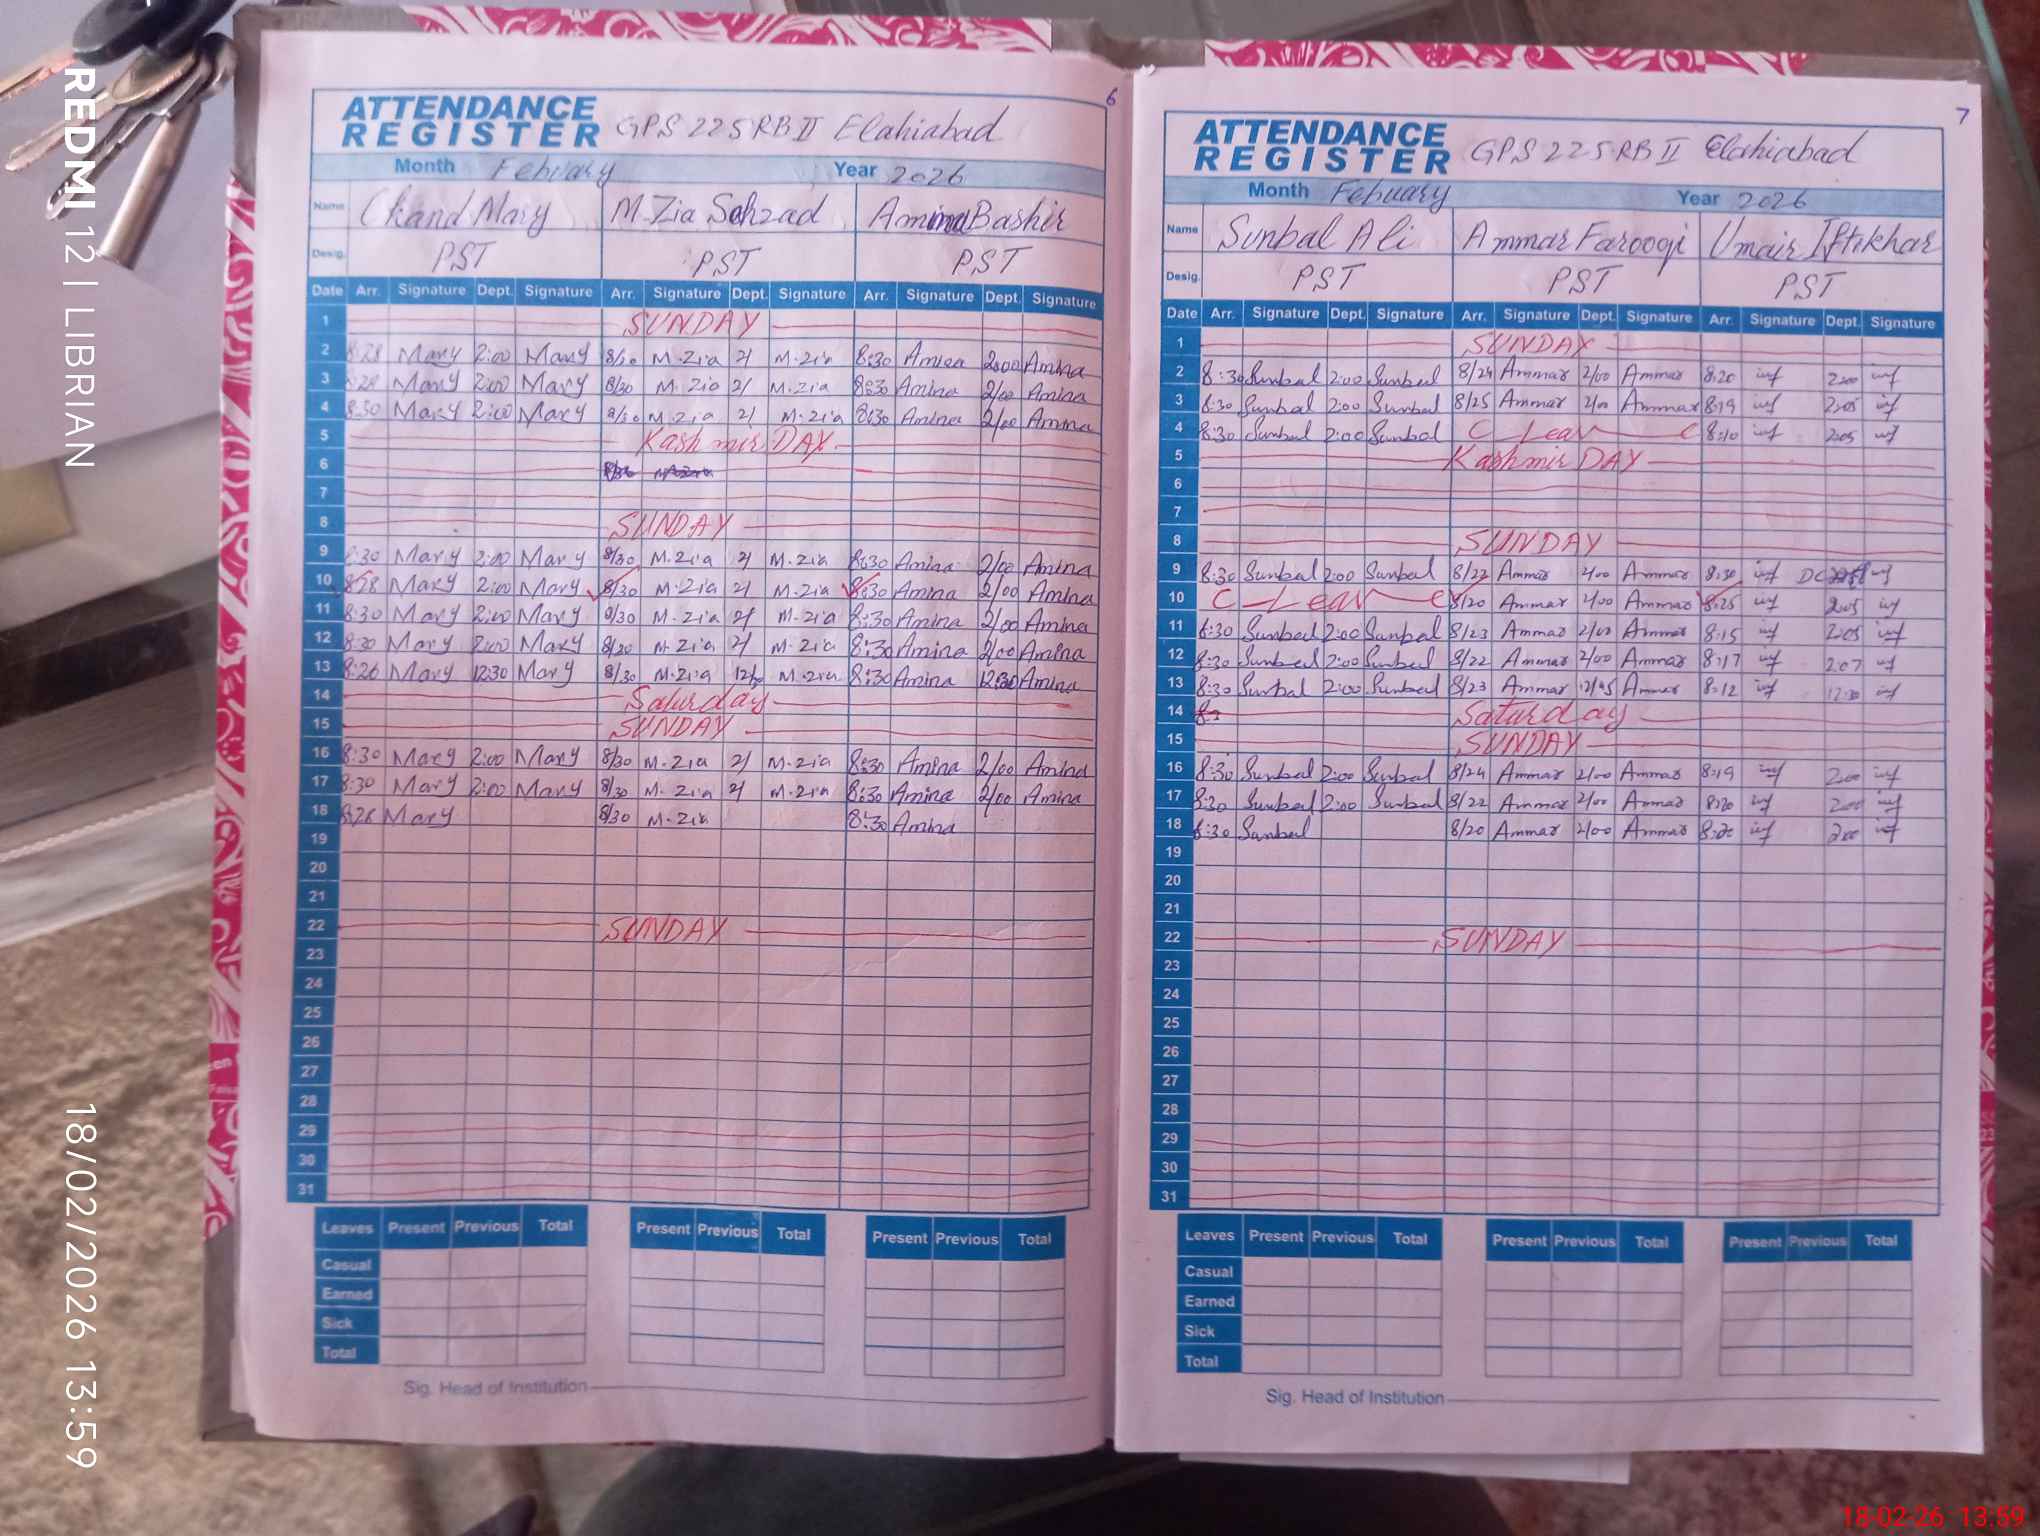 6
ATTENDANCE
REGISTER GPS 225 RB II Elahiabad
Month Febuary Year 2026
Name Chand Mary M-Zia Sahzad Amina Bashir
Desig. PST PST PST
Date Arr. Signature Dept. Signature Arr. Signature Dept. Signature Arr. Signature Dept. Signature
1 SUNDAY
2 8:28 Mary 2:00 Mary 8/30 M-Zia 2/ M-Zia 8:30 Amina 2:00 Amina
3 8:28 Mary 2:00 Mary 8/30 M-Zia 2/ M-Zia 8:30 Amina 2/00 Amina
4 8:30 Mary 2:00 Mary 8/30 M-Zia 2/ M-Zia 8:30 Amina 2/00 Amina
5 Kashmir DAY
6
7
8 SUNDAY
9 8:30 Mary 2:00 Mary 8/30 M-Zia 2/ M-Zia 8:30 Amina 2/00 Amina
10 8:28 Mary 2:00 Mary 8/30 M-Zia 2/ M-Zia 8:30 Amina 2/00 Amina
11 8:30 Mary 2:00 Mary 8/30 M-Zia 2/ M-Zia 8:30 Amina 2/00 Amina
12 8:30 Mary 2:00 Mary 8/30 M-Zia 2/ M-Zia 8:30 Amina 2/00 Amina
13 8:26 Mary 12:30 Mary 8/30 M-Zia M-Zia 8:30 Amina 12:30 Amina
14 Saturday
15 SUNDAY
16 8:30 Mary 2:00 Mary 8/30 M-Zia 2/ M-Zia 8:30 Amina 2/00 Amina
17 8:30 Mary 2:00 Mary 8/30 M-Zia 2/ M-Zia 8:30 Amina 2/00 Amina
18 8:28 Mary 8/30 M-Zia 8:30 Amina
19
20
21
22 SUNDAY
23
24
25
26
27
28
29
30
31
Leaves Present Previous Total Present Previous Total Present Previous Total
Casual
Earned
Sick
Total
Sig. Head of Institution
7
ATTENDANCE
REGISTER GPS 225 RB II Elahiabad
Month Febuary Year 2026
Name Sunbal Ali Ammar Farooqi Umair Iftikhar
Desig. PST PST PST
Date Arr. Signature Dept. Signature Arr. Signature Dept. Signature Arr. Signature Dept. Signature
1 SUNDAY
2 8:30 Sunbal 2:00 Sunbal 8/24 Ammar 2/00 Ammar 8:20 2:00
3 8:30 Sunbal 2:00 Sunbal 8/25 Ammar 2/00 Ammar 8:19 2:05
4 8:30 Sunbal 2:00 Sunbal C Leav e 8:10 2:05
5 Kashmir DAY
6
7
8 SUNDAY
9 8:30 Sunbal 2:00 Sunbal 8/22 Ammar 2/00 Ammar 8:30
10 C Leav e 8/20 Ammar 2/00 Ammar 8:25 2:05
11 8:30 Sunbal 2:00 Sunbal 8/23 Ammar 2/00 Ammar 8:15 2:05
12 8:30 Sunbal 2:00 Sunbal 8/22 Ammar 2/00 Ammar 8:17 2:07
13 8:30 Sunbal 2:00 Sunbal 8/23 Ammar Ammar 8:12 12:30
14 Saturday
15 SUNDAY
16 8:30 Sunbal 2:00 Sunbal 8/24 Ammar 2/00 Ammar 8:19 2:00
17 8:30 Sunbal 2:00 Sunbal 8/22 Ammar 2/00 Ammar 8:20 2:00
18 8:30 Sunbal 8/20 Ammar 2/00 Ammar 8:20 2:00
19
20
21
22 SUNDAY
23
24
25
26
27
28
29
30
31
Leaves Present Previous Total Present Previous Total Present Previous Total
Casual
Earned
Sick
Total
Sig. Head of Institution
REDMI 12 | LIBRIAN
18/02/2026 13:59
18-02-26 13:59